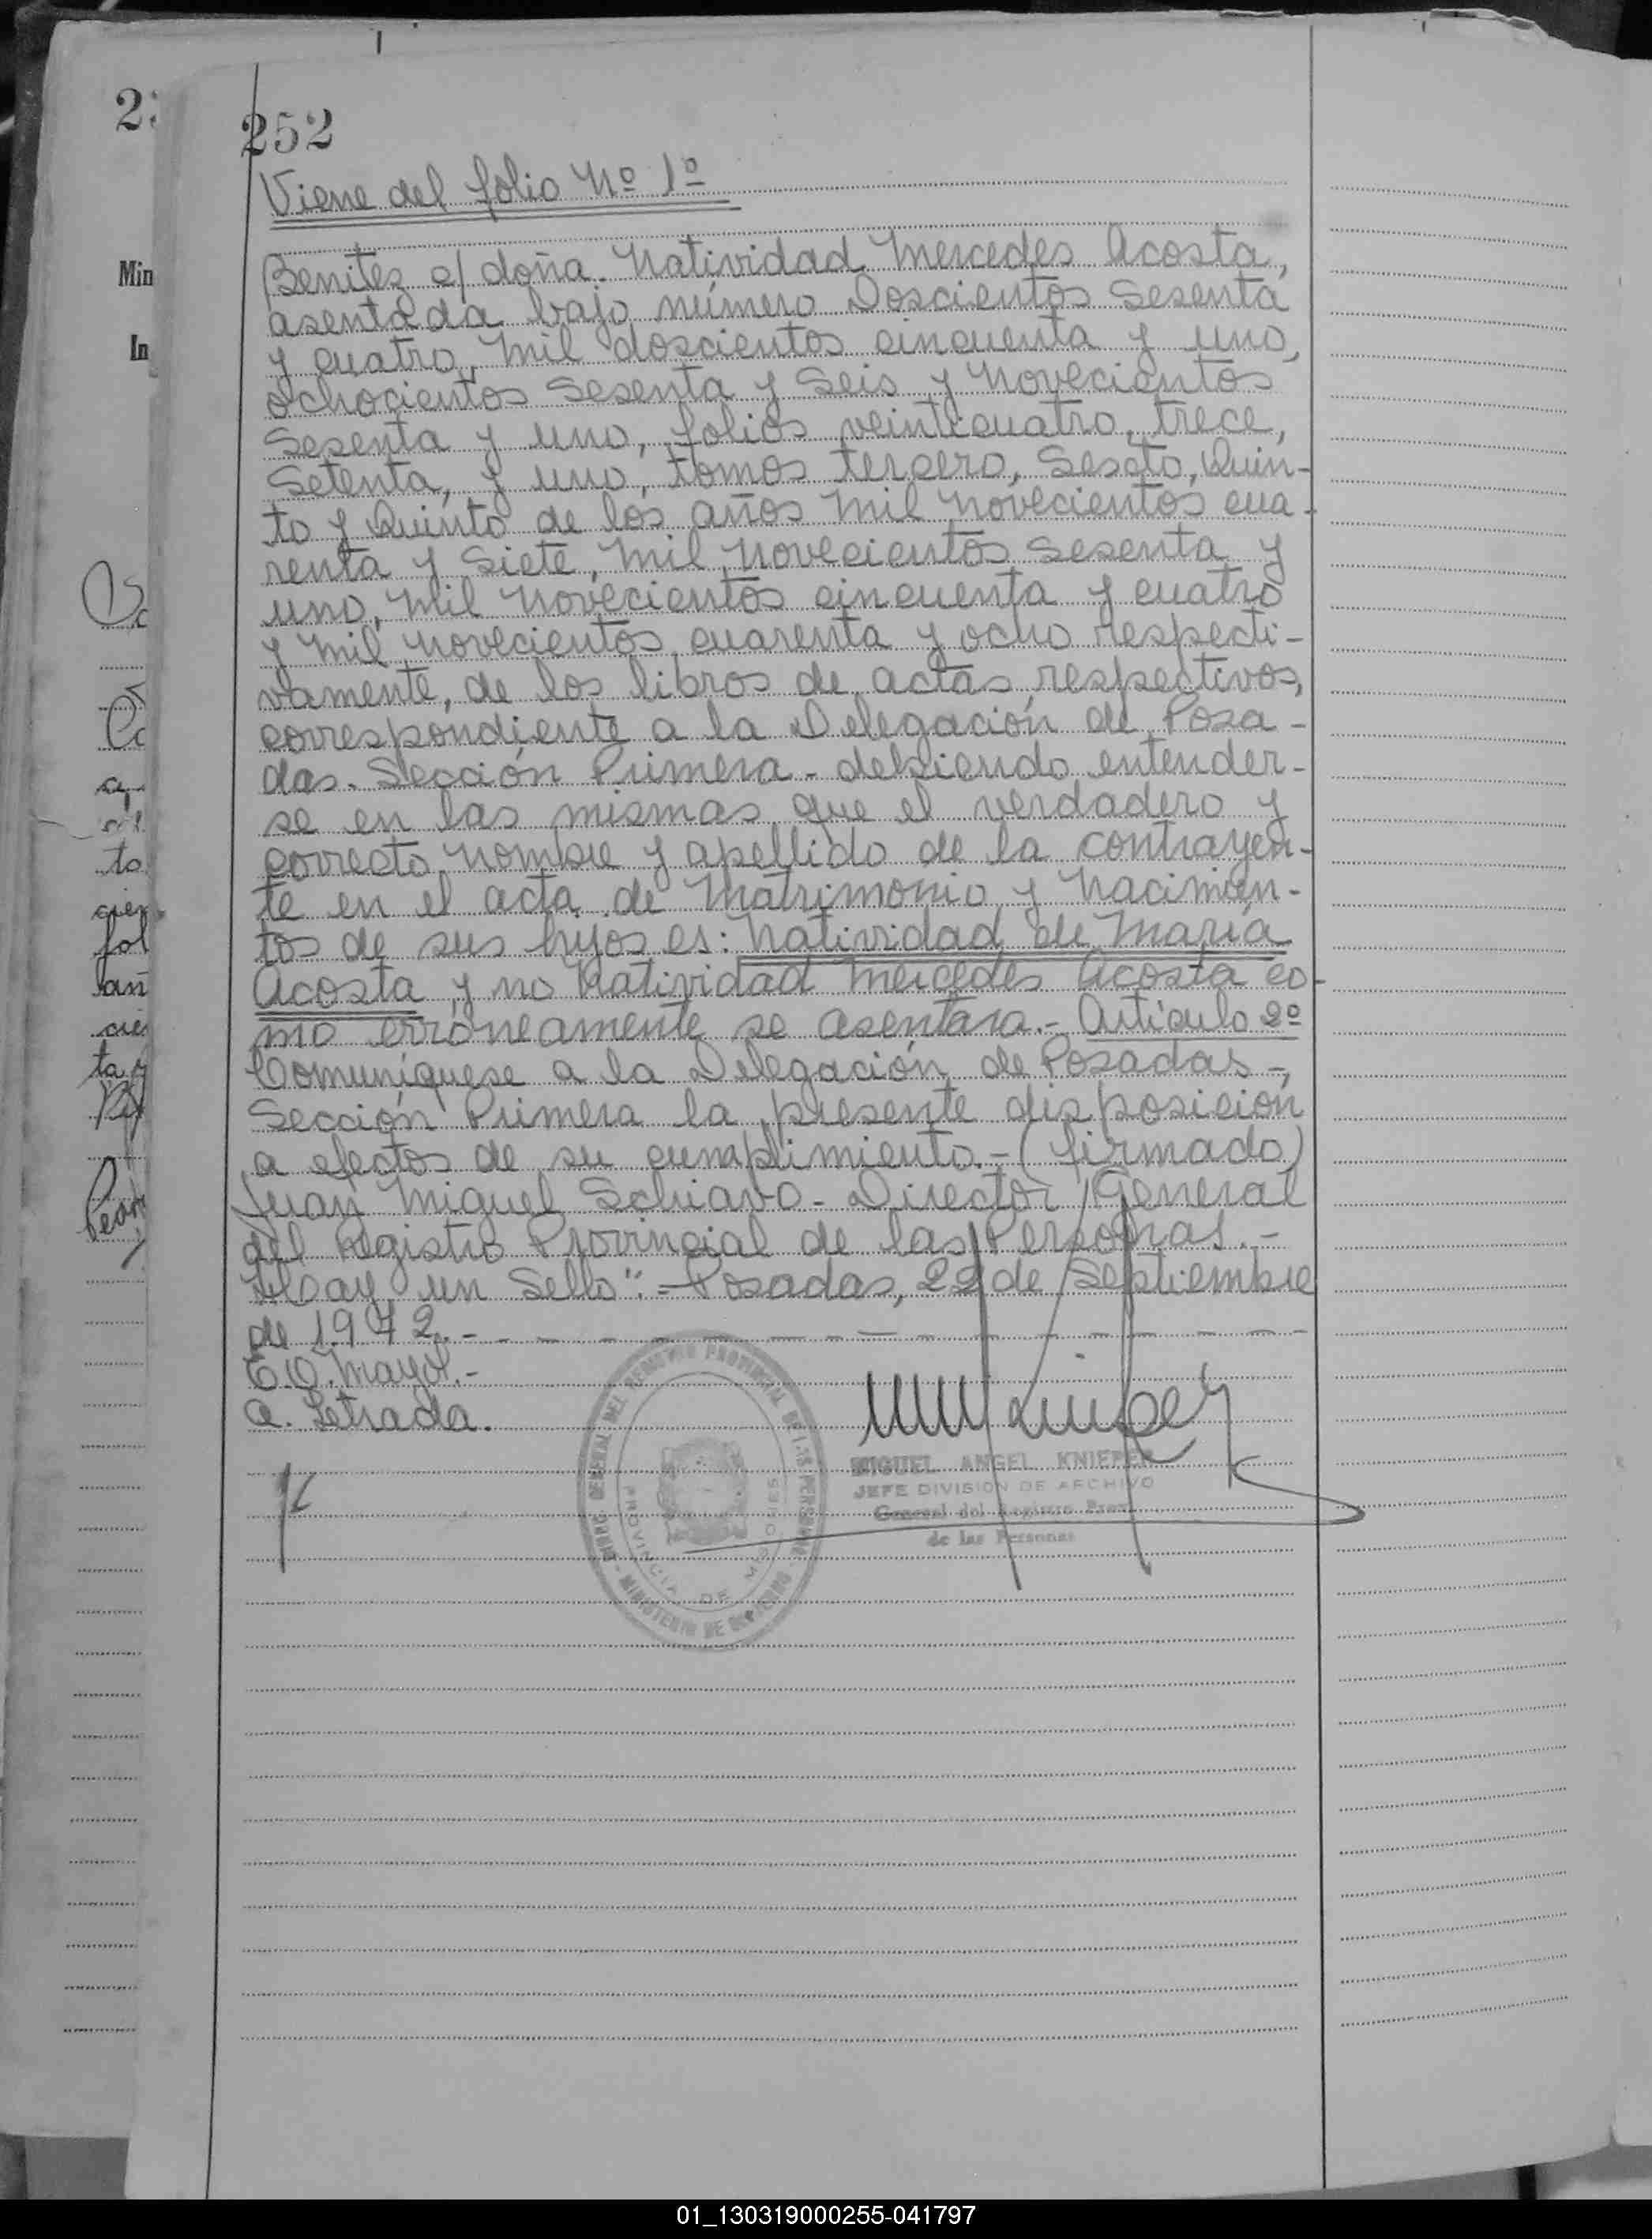 252
Viene del folio Nº 1º
Benites c/ doña Natividad Mercedes Acosta,
asentada bajo número Doscientos Sesenta
y cuatro, Mil doscientos cincuenta y uno,
ochocientos Sesenta y Seis y Novecientos
Sesenta y uno, folios veinticuatro, trece,
Setenta, y uno, tomos tercero, Sexto, Quin-
to y Quinto de los años Mil Novecientos cua-
renta y Siete, Mil Novecientos Sesenta y
uno, Mil Novecientos cincuenta y cuatro
y Mil Novecientos cuarenta y ocho respecti-
vamente, de los libros de actas respectivos,
correspondiente a la Delegación de Posa-
das. Sección Primera - debiendo entender-
se en las mismas que el verdadero y
correcto Nombre y apellido de la contrayen-
te en el acta de Matrimonio y Nacimien-
tos de sus hijos es: Natividad de María
Acosta y no Natividad Mercedes Acosta co-
mo erróneamente se asentara.- Artículo 2º
Comuníquese a la Delegación de Posadas -,
Sección Primera la presente disposición
a efectos de su cumplimiento.- (firmado)
Juan Miguel Schiavo - Director General
del Registro Provincial de las Personas.-
"Hay un Sello".- Posadas, 22 de Septiembre
de 1972.-
E.O. Mayol.-
a. Letrada.
MIGUEL ANGEL KNIEPER
JEFE DIVISION DE ARCHIVO
General del Registro Prov.
de las Personas
GENERAL DEL REGISTRO PROVINCIAL DE LAS PERSONAS
MINISTERIO DE GOBIERNO
PROVINCIA DE MISIONES
Min
In
to
fol
an
ta y
01_130319000255-041797